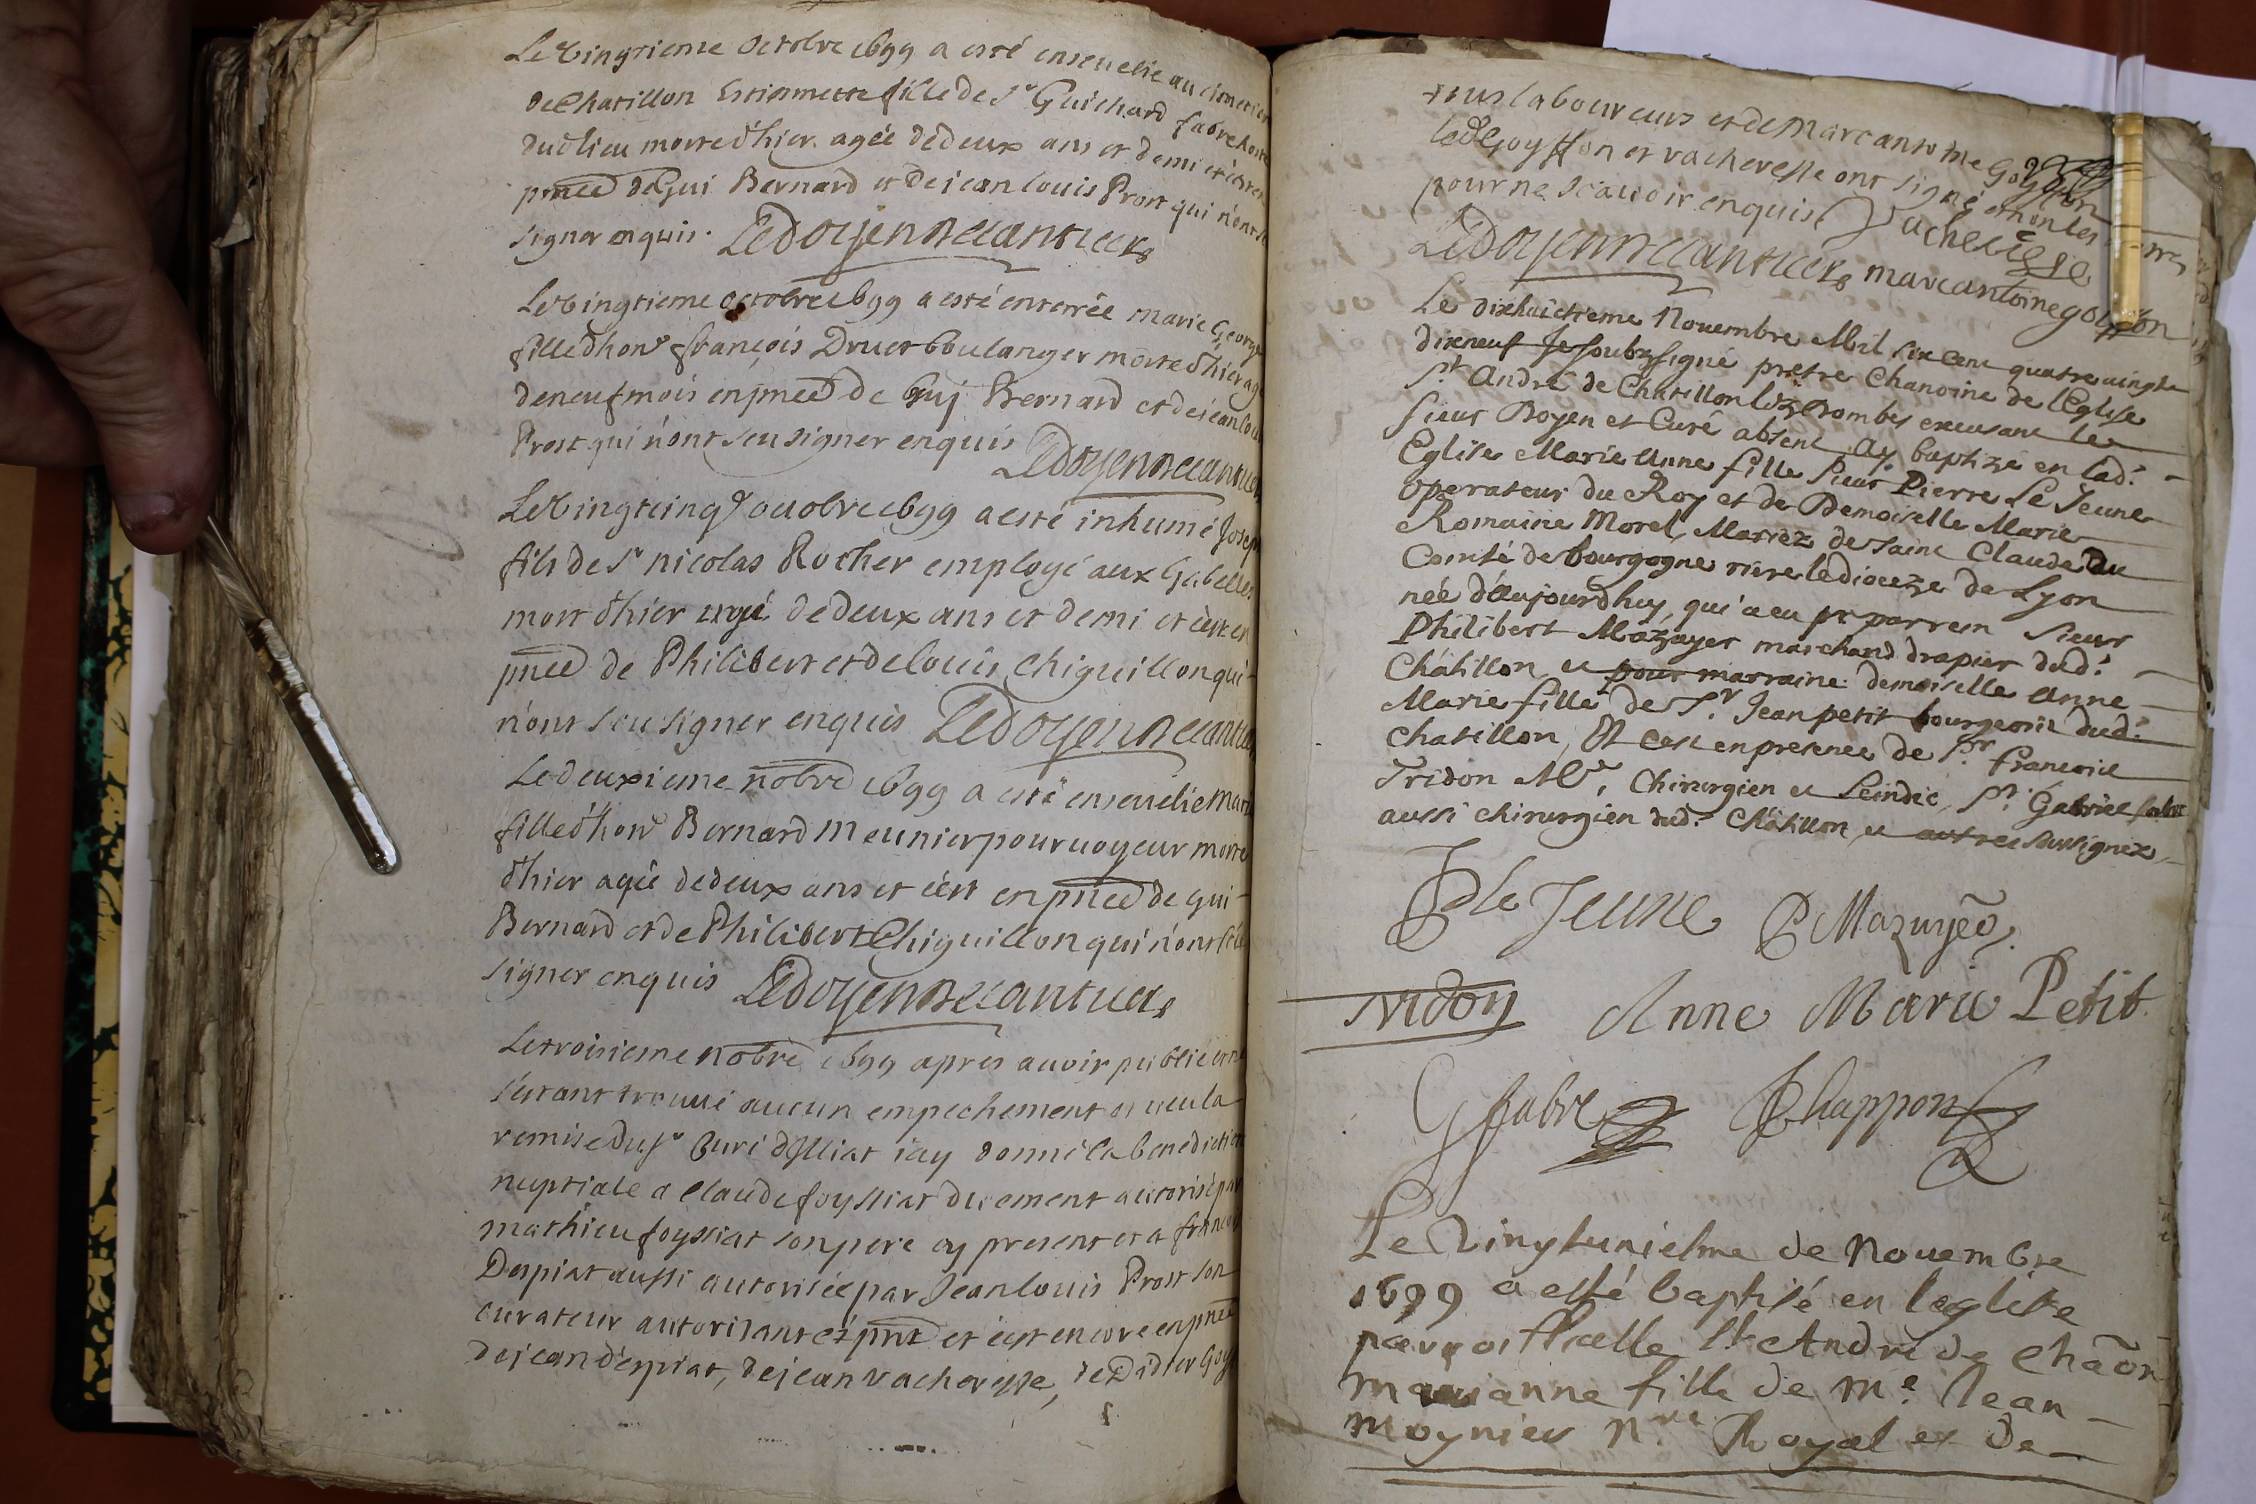 Le vingtieme octobre 1699 a esté enseuelie au cimetier
de Chatillon Estiennette fille de Sr Guichard fabre hoste
dud lieu morte d'hier agée de deux ans et demi et c'est en
pnce de Gui Bernard et de jean louis Prost qui n'ont sc
signer enquis. Ledoyen
Le vingtieme octobre 1699 a esté enterrée marie George
fille d'hon françois Druet boulanger morte d'hier agé
de neuf mois en pnce de Guy Bernard et de jean loui
Prost qui n'ont sceu signer enquis
Ledoyen
Le vingtcinq octobre 1699 a esté inhumé Josep
fils de Sr nicolas Rocher employé aux Gabelles
mort d'hier agé de deux ans et demi et c'est en
pnce de Philibert et de louis Chiguillon qui
n'ont sceu signer enquis Ledoyen
Le deuxieme nobre 1699 a esté enseuelie Mari
fille d'hon Bernard Meunier pouruoyeur morte
d'hier agée de deux ans et c'est en pnce de gui
Bernard et de Philibert Chiguillon qui n'ont
signer enquis Ledoyen
Le troisieme nobre 1699 apres auoir publié et n
s'etant trouué aucun empechement et ueu la
remise du Sr Curé d'Illiat iay donné la benediction
nuptiale a Claude foyssiat duement autorisé par
mathieu foyssiat son pere cy present et a franç
Despiat aussi autorisée par Jean louis Prost son
curateur autorisant et pnt et c'est encore en pnce
de jean despiat, de jean vacheresse, de Didier Goy
tous laboureurs et de Marc antoine Goyffon
led Goyffon et vacheresse ont signé et non les
pour ne scauoir enquis Vacheresse
Ledoyen marcantoine goyffon
Le dixhuictieme Nouembre Mil six cent quatre uingts
dixneuf Je soubsigné prêtre Chanoine de l'Eglise
St. André de Chatillon lez Dombes excusant le
sieur Doyen et Curé absent ay baptizé en lad.
Eglise Marie Anne fille Sieur Pierre Le Jeune
operateur du Roy et de Demoiselle Marie
Romaine Morel, Mariez de saint Claude Du
Comté de bourgogne riere le dioceze de Lyon
née d'aujourdhuy, qui a eu pr parrein Sieur
Philibert Mazuyer marchand drapier dud.
Châtillon et pour marraine demoiselle Anne
Marie fille de Sr. Jean petit bourgeois dud.
Chatillon, Et c'est en presence de Sr. françois
Tridon Me. Chirurgien et Scindic, Sr. Gabriel fabre
aussi chirurgien dud. Châtillon, et autres soussignez
le Jeune P Mazuyer
Tridon Anne Marie Petit
G fabre Chappon
Le Vingtuniesme de Nouembre
1699 a esté baptisé en leglise
parroissialle St Andre de Chaōn
marianne fille de me. Jean
moynier Nre Royal et de